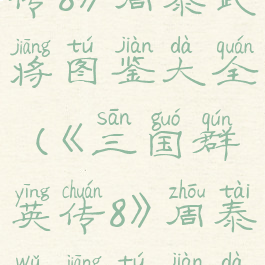 传8》周泰武
jiāng tú jiàn dà quán
将图鉴大全
sān guó qún
(《三国群
yīng chuán zhōu tài
英传8》周泰
wǔ jiāng tú jiàn dà